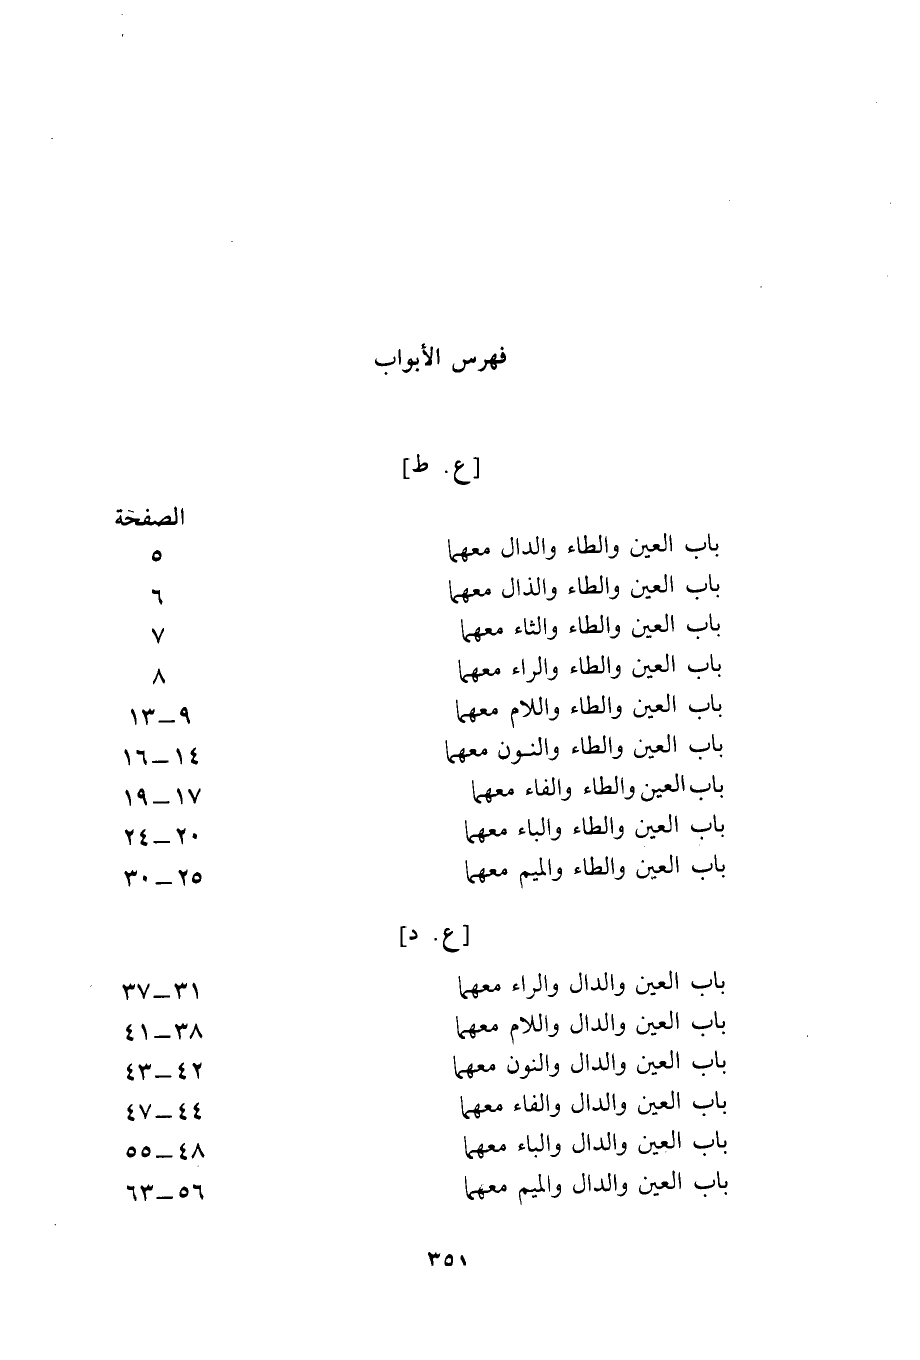 فهرس الأبواب
[ع. ط]
الصفحة
باب العين والطاء والدال معهما ٥
باب العين والطاء والذال معهما ٦
باب العين والطاء والثاء معهما ٧
باب العين والطاء والراء معهما ٨
باب العين والطاء واللام معهما ٩—١٣
باب العين والطاء والنون معهما ١٤—١٦
باب العين والطاء والفاء معهما ١٧—١٩
باب العين والطاء والباء معهما ٢٠—٢٤
باب العين والطاء والميم معهما ٢٥—٣٠
[ع. د]
باب العين والدال والراء معهما ٣١—٣٧
باب العين والدال واللام معهما ٣٨—٤١
باب العين والدال والنون معهما ٤٢—٤٣
باب العين والدال والفاء معهما ٤٤—٤٧
باب العين والدال والباء معهما ٤٨—٥٥
باب العين والدال والميم معهما ٥٦—٦٣
٣٥١